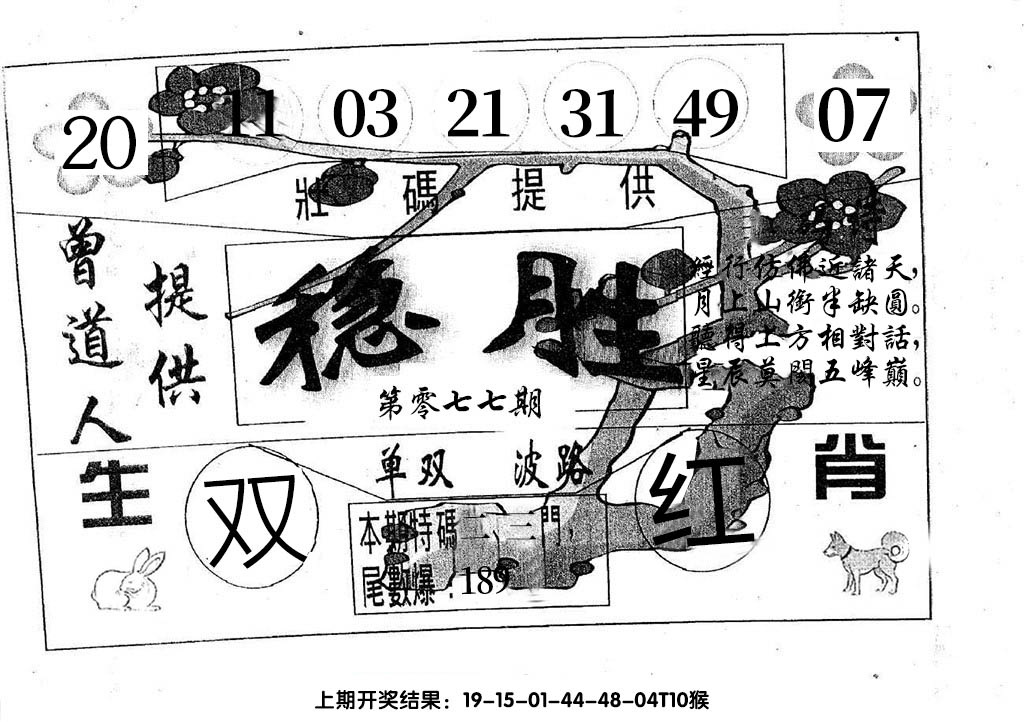 20 11 03 21 31 49 07
壯碼提供
曾道人
提供
稳胜
第零七七期
經行仿佛近諸天,
月上山銜半缺圓。
聽得上方相對話,
星辰莫關五峰巔。
生肖
单双 波路
双
红
本期特碼二、三門,
尾數爆:189
上期开奖结果：19-15-01-44-48-04T10猴